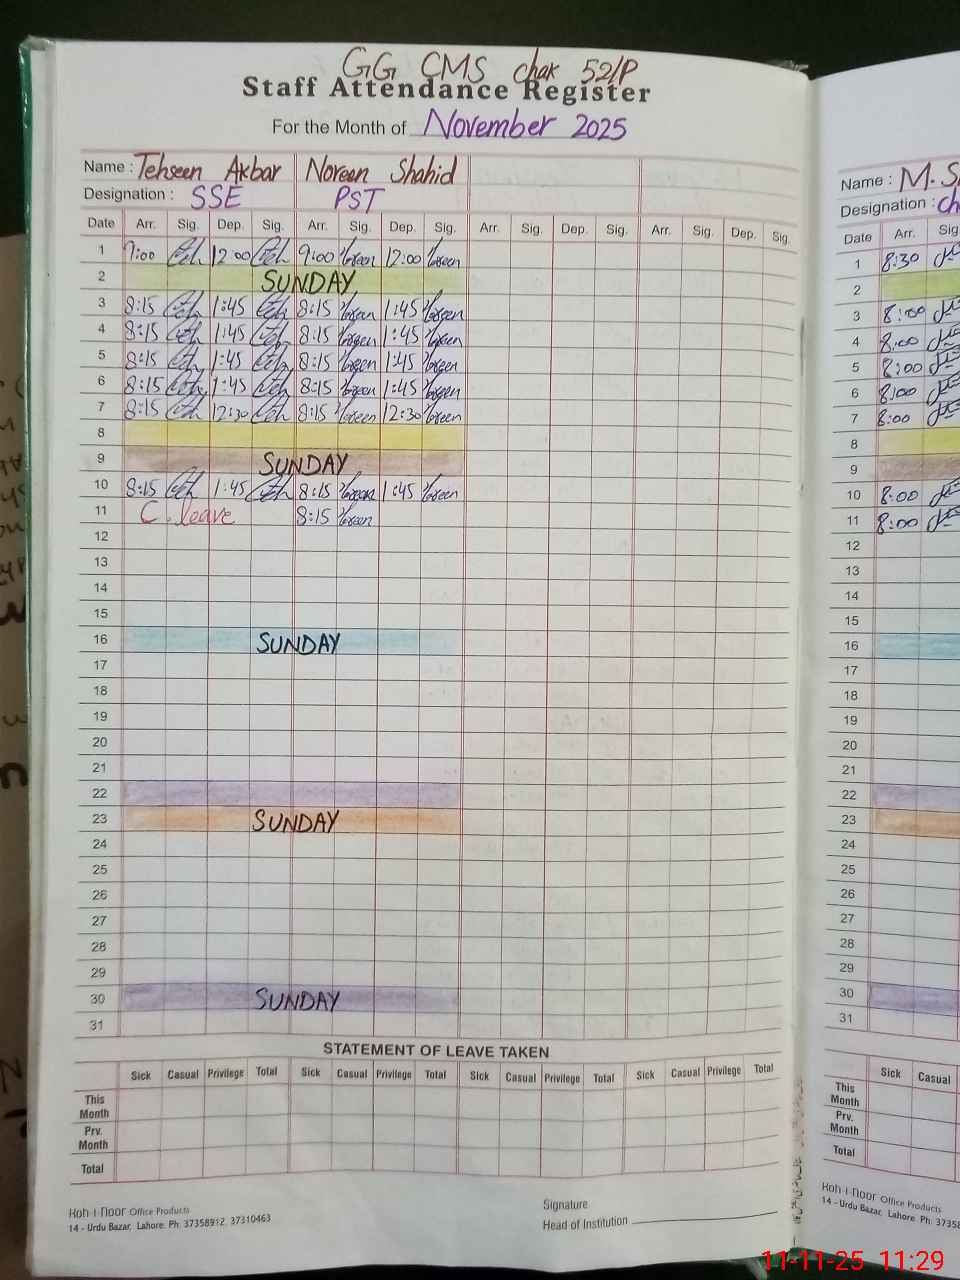 GG CMS chak 52/P
Staff Attendance Register
For the Month of November 2025
Name : Tehseen Akbar Noreen Shahid
Designation : SSE PST
Date Arr. Sig. Dep. Sig. Arr. Sig. Dep. Sig. Arr. Sig. Dep. Sig. Arr. Sig. Dep. Sig.
1 9:00 12:00 9:00 Noreen 12:00 Noreen
2 SUNDAY
3 8:15 1:45 8:15 Noreen 1:45 Noreen
4 8:15 1:45 8:15 Noreen 1:45 Noreen
5 8:15 1:45 8:15 Noreen 1:45 Noreen
6 8:15 1:45 8:15 Noreen 1:45 Noreen
7 8:15 12:30 8:15 Noreen 12:30 Noreen
8
9 SUNDAY
10 8:15 1:45 8:15 Noreen 1:45 Noreen
11 C. leave 8:15 Noreen
12
13
14
15
16 SUNDAY
17
18
19
20
21
22
23 SUNDAY
24
25
26
27
28
29
30 SUNDAY
31
STATEMENT OF LEAVE TAKEN
Sick Casual Privilege Total Sick Casual Privilege Total Sick Casual Privilege Total Sick Casual Privilege Total
This Month
Prv. Month
Total
Koh-i-noor Office Products
14 - Urdu Bazar, Lahore. Ph. 37358912, 37310463
Signature
Head of Institution
Name : M.
Designation :
Date Arr.
1 8:30
2
3 8:00
4 8:00
5 8:00
6 8:00
7 8:00
8
9
10 8:00
11 8:00
12
13
14
15
16
17
18
19
20
21
22
23
24
25
26
27
28
29
30
31
Sick Casual
This Month
Prv. Month
Total
Koh-i-noor Office Products
14 - Urdu Bazar, Lahore. Ph.
11-11-25 11:29